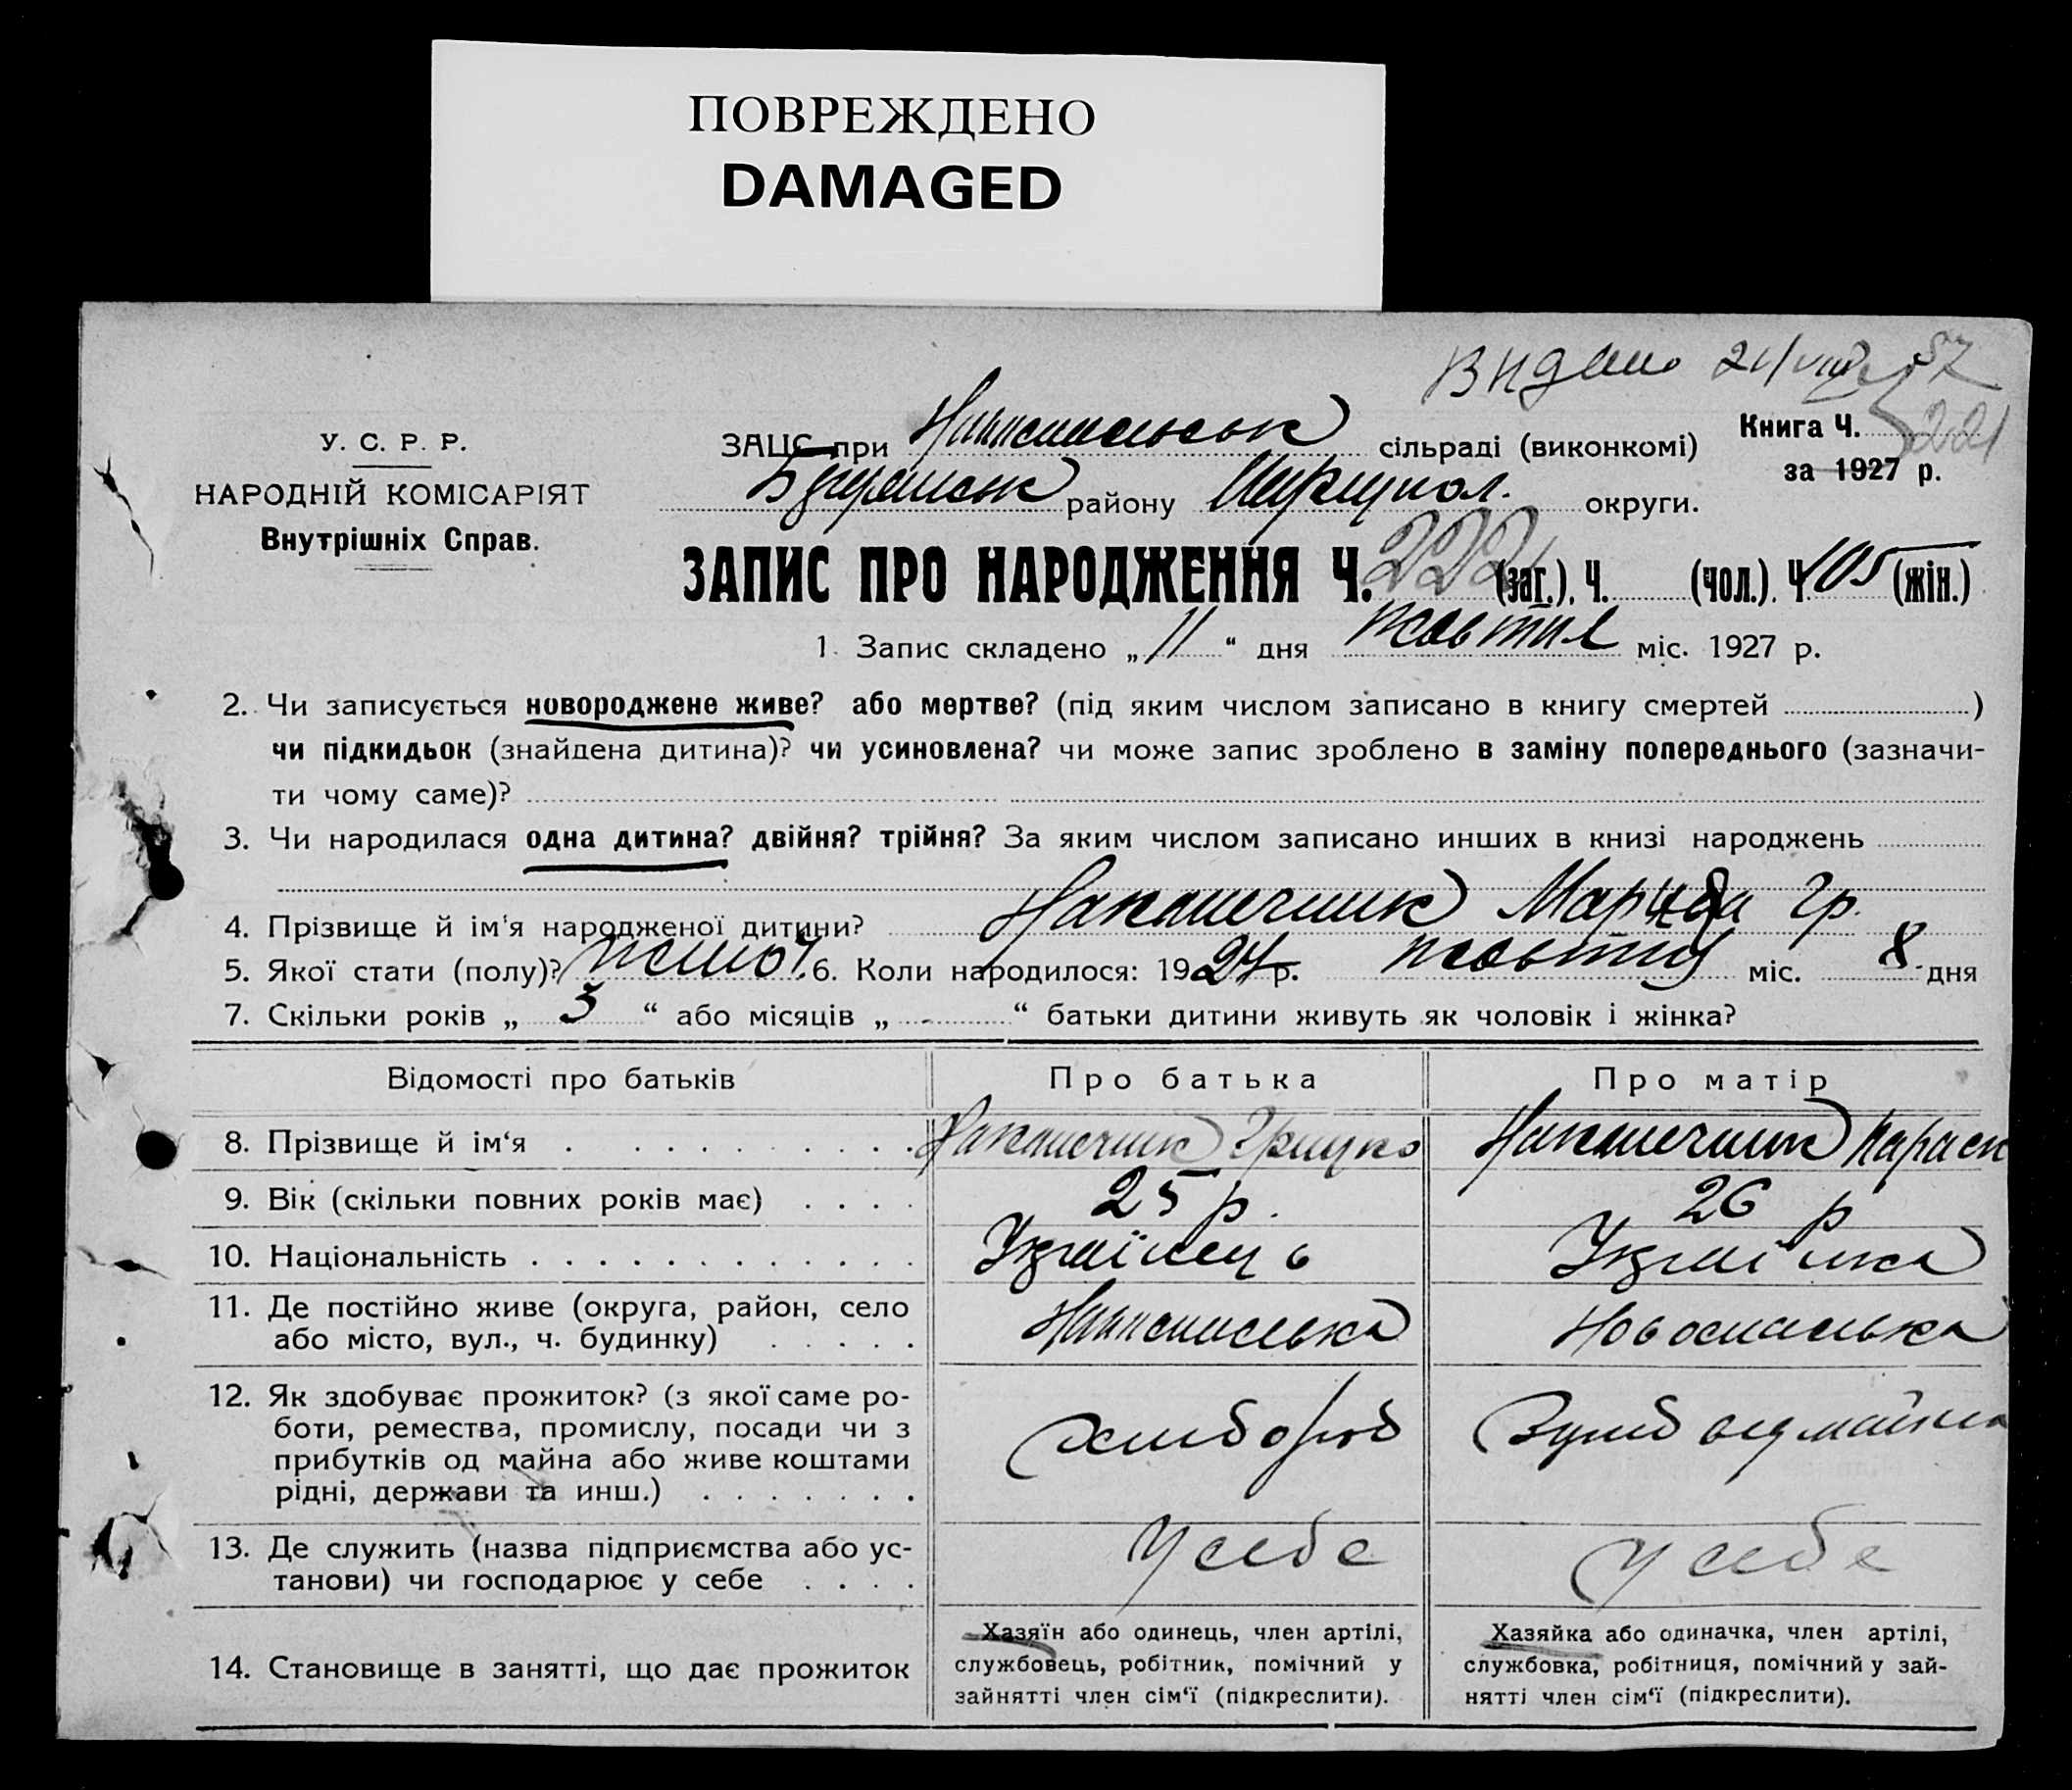 ПОВРЕЖДЕНО
DAMAGED
Видано 21/VIII 57
У. С. Р. Р.
НАРОДНІЙ КОМІСАРІЯТ
Внутрішніх Справ.
ЗАЦС при сільраді (виконкомі)
Книга Ч. 221
за 1927 р.
району Маріупол. округи.
ЗАПИС ПРО НАРОДЖЕННЯ Ч. 222 (заг.). Ч. (чол.). Ч. 105 (жін.)
1. Запис складено „ 11 “ дня жовтня міс. 1927 р.
2. Чи записується новороджене живе? або мертве? (під яким числом записано в книгу смертей )
чи підкидьок (знайдена дитина)? чи усиновлена? чи може запис зроблено в заміну попереднього (зазначи-
ти чому саме)?
3. Чи народилася одна дитина? двійня? трійня? За яким числом записано инших в книзі народжень
4. Прізвище й ім‘я народженої дитини? Наконечник Гр.
5. Якої стати (полу)? жіноч. 6. Коли народилося: 1927 р. жовтня міс. 8 дня
7. Скільки років „ 3 “ або місяців „ - “ батьки дитини живуть як чоловік і жінка?
Відомості про батьків
Про батька
Про матір
8. Прізвище й ім‘я
Наконечник Грицко
Наконечник Параск
9. Вік (скільки повних років має)
25 р.
26 р
10. Національність
Українець
Українка
11. Де постійно живе (округа, район, село
або місто, вул., ч. будинку)
Новоспаська
12. Як здобуває прожиток? (з якої саме ро-
боти, ремества, промислу, посади чи з
прибутків од майна або живе коштами
рідні, держави та инш.)
хлібороб
від майна
13. Де служить (назва підприємства або ус-
танови) чи господарює у себе
У себе
У себе
14. Становище в занятті, що дає прожиток
Хазяїн або одинець, член артілі,
службовець, робітник, помічний у
зайнятті член сім‘ї (підкреслити).
Хазяйка або одиначка, член артілі,
службовка, робітниця, помічний у зай-
нятті член сім‘ї (підкреслити).